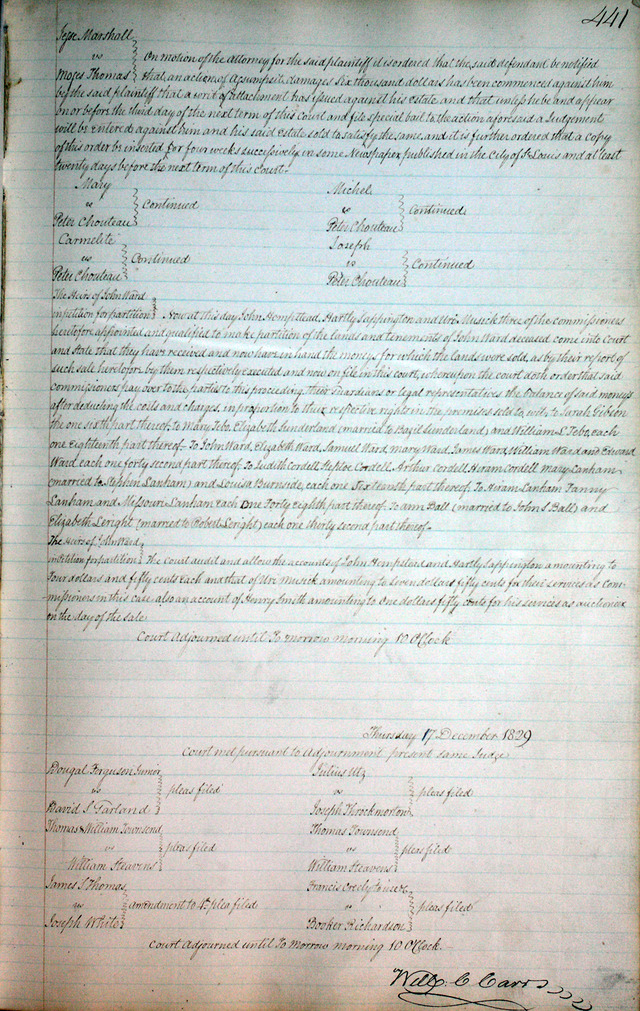 441
Jesse Marshall
vs
Moses Thomas
On motion of the attorney for the said plaintiff it is ordered that the said defendant be notified
that an action of Assumpsit, damages Six thousand dollars has been commenced against him
by the said plaintiff that a writ of attachment has issued against his estate and that unless he be and appear
on or before the third day of the next term of this Court and file special bail to the action aforesaid a Judgement
will be entered against him and his said Estate sold to satisfy the same, and it is further ordered that a Copy
of this order be inserted for four weeks successively in some Newspaper published in the City of St Louis and at least
twenty days before the next term of this Court.
Mary
vs
Peter Chouteau
Continued
Michel
vs
Peter Chouteau
Continued
Carmelite
vs
Peter Chouteau
Continued
Joseph
vs
Peter Chouteau
Continued
The Heirs of John Ward
in petition for partition
Now at this day John Hempstead, Hartly Sappington and Uri Musick three of the commissioners
heretofore appointed and qualified to make partition of the lands and tenements of John Ward deceased come into Court
and State that they have received and now have in hand the moneys for which the lands were sold, as by their report of
such sale heretofore by them respectively executed and now on file in this court, whereupon the court doth order that said
commissioners pay over to the parties to this proceeding, their Guardians or legal representatives the balance of said moneys
after deducting the costs and charges, in proportion to their respective rights in the premises sold to wit; to Sarah Gibson
the one sixth part thereof to Mary Tebo, Elizabeth Sunderland (married to Bazil Sunderland) and William L. Tebo, each
one Eighteenth part thereof- To John Ward, Elizabeth Ward, Samuel Ward, Mary Ward, James Ward William Ward and Edward
Ward, each one forty second part thereof To Judith Cordell Cordell, Arthur Cordell Hiram Cordell Mary Lanham
(married to Stephen Lanham) and Louisa Burnside, each one Sixteenth part thereof To Hiram Lanham Fanny
Lanham and Missouri Lanham each One Forty eighth part thereof. To Ann Ball (married to John S Ball) and
Elizabeth (married to Robert ) each one thirty second part thereof.-
The Heirs of John Ward
in petition for partition
The Court audit and allow the accounts of John Hempstead and Hartly Sappington amounting to
Four dollars and fifty cents each and that of Uri Musick amounting to Seven dollars fifty cents for their services as Com-
-missioners in this case also an account of Henry Smith amounting to One dollars fifty cents for his services as auctioneer
on the day of the sale.
Court Adjourned until To morrow morning 10 OClock
Thursday 17 December 1829
Court met pursuant to Adjournment present same Judge
Dougal Ferguson Junior
vs
David S Garland
pleas filed
Julius
vs
Joseph Throckmorton
pleas filed
Thomas & William Townsend
vs
William Steavens
pleas filed
Thomas Townsend
vs
William Steavens
pleas filed
James S Thomas
vs
Joseph White
amendment to 4th plea filed
Francis
vs
Booker Richardson
pleas filed
Court Adjourned until To Morrow morning 10 OClock.-
Will. C Carr